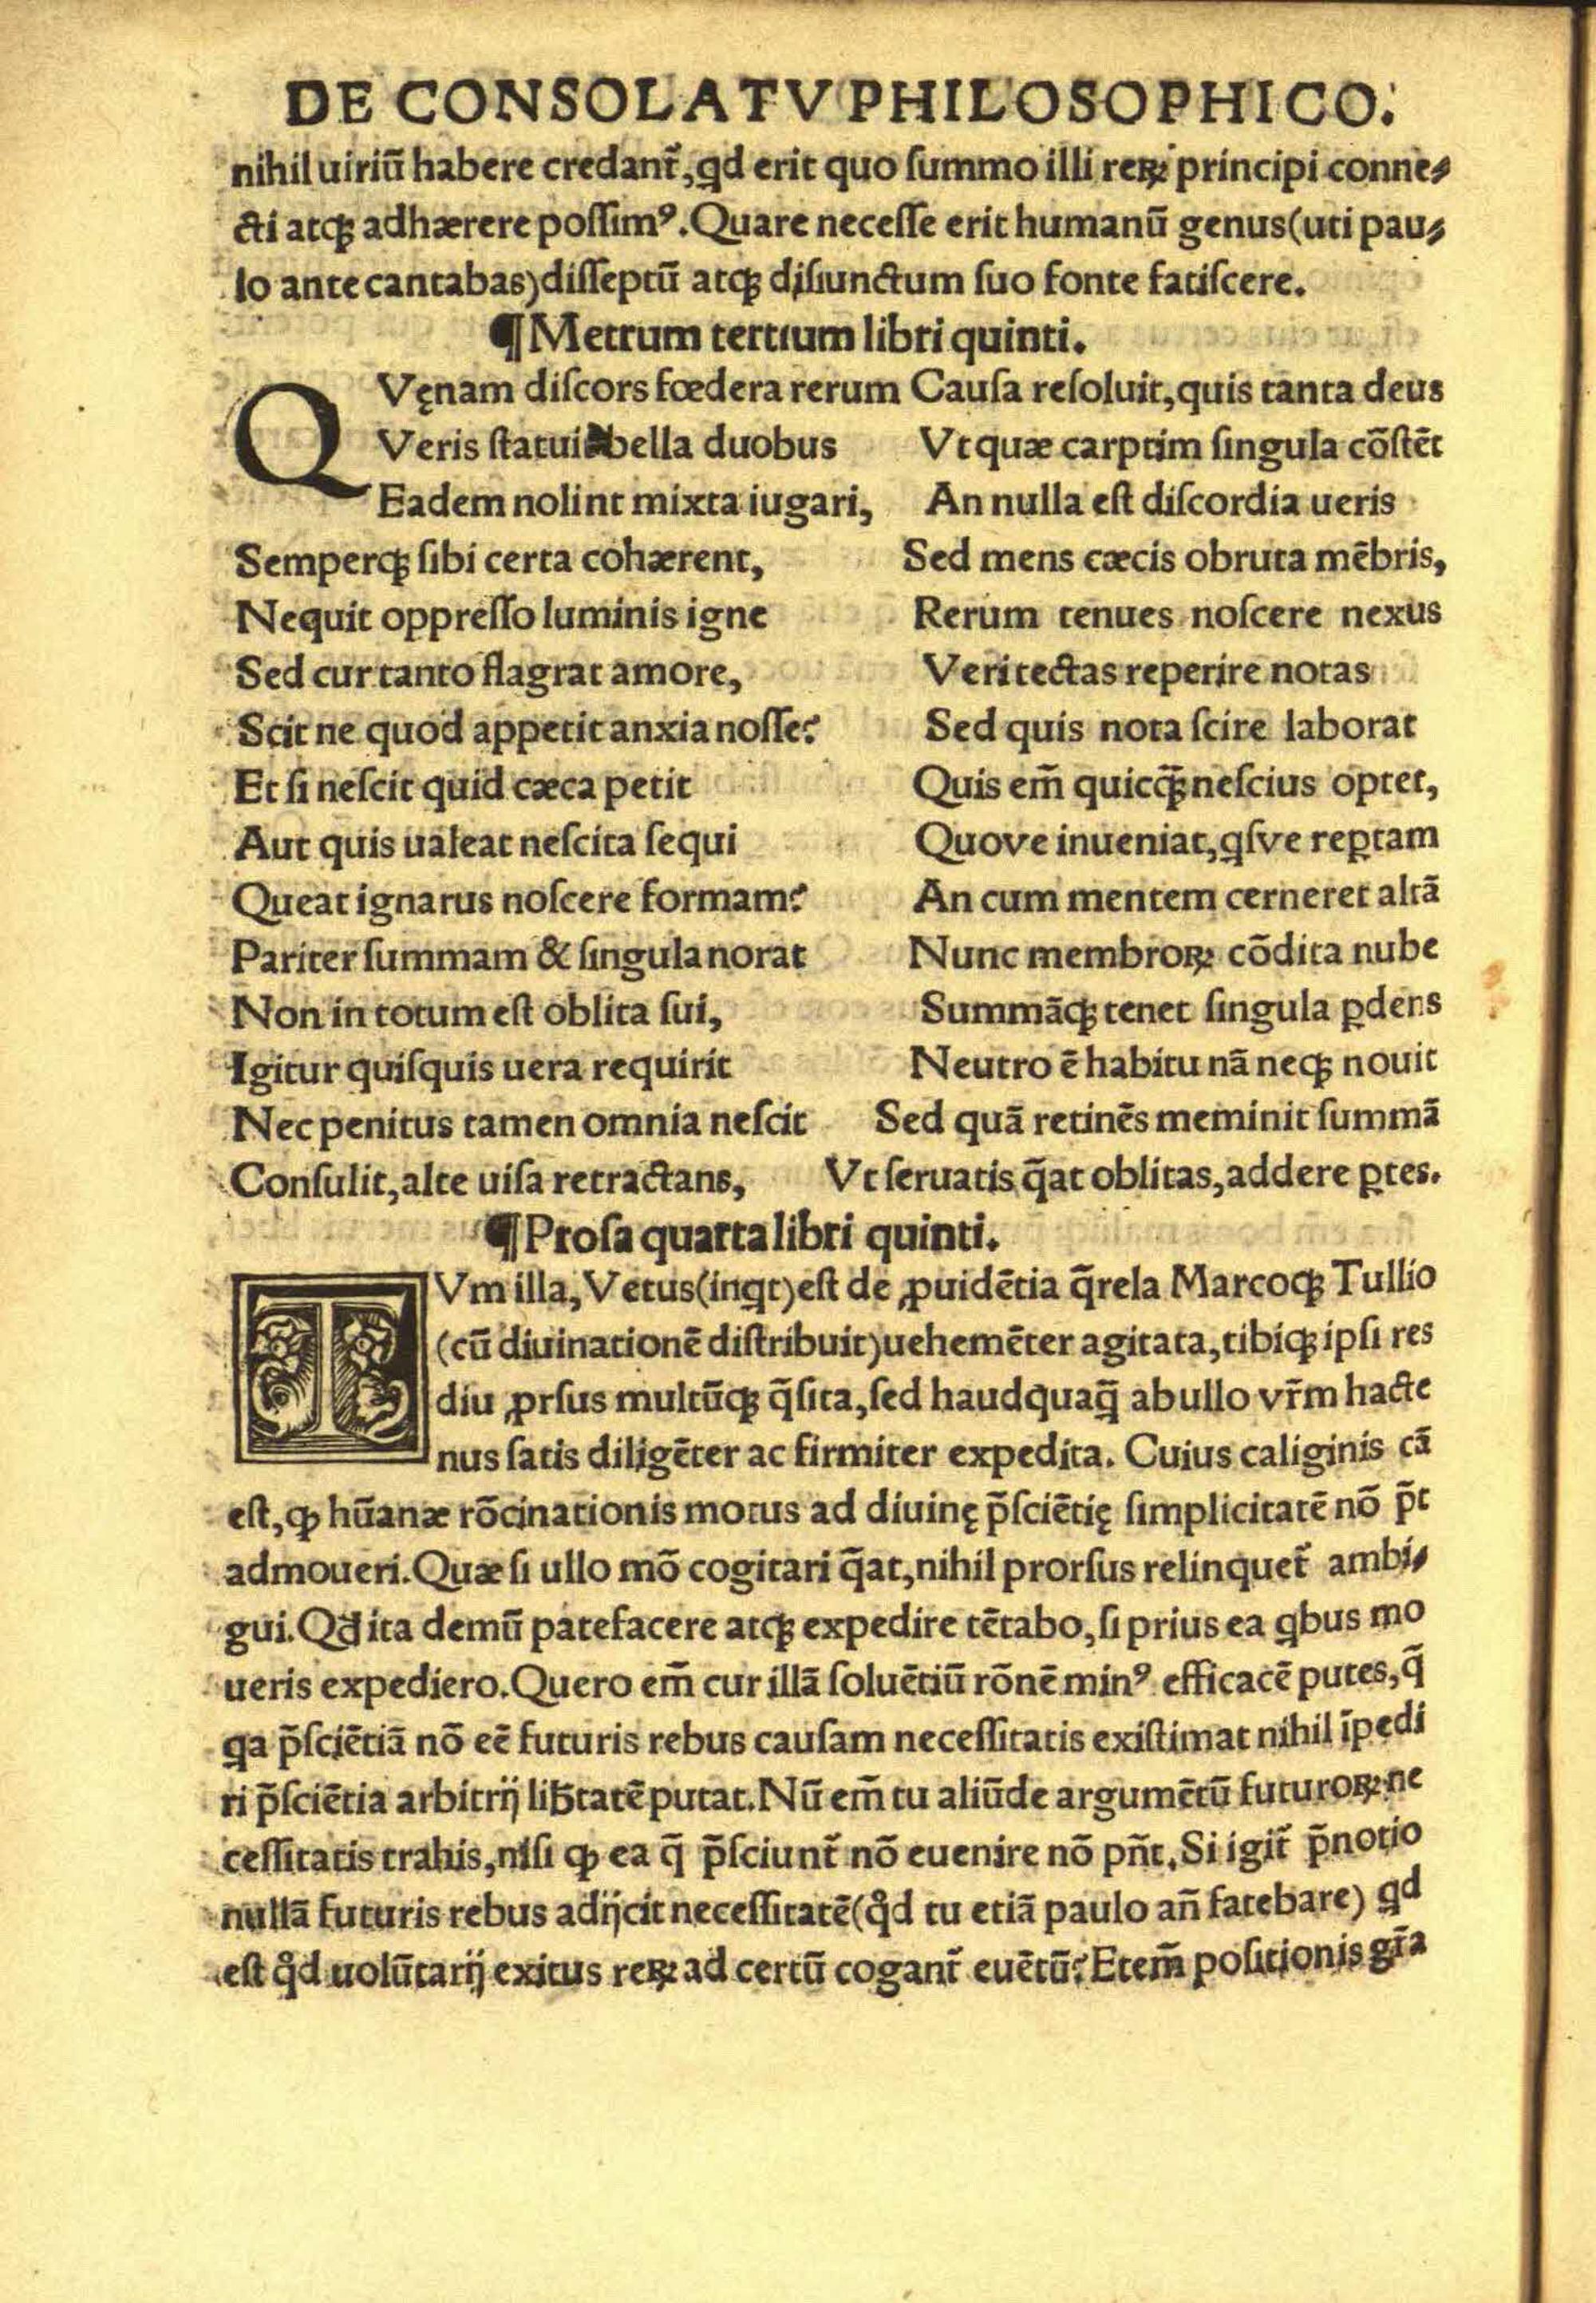 DE CONSOLATV PHILOSOPHICO.
nihil uiriū habere credant᷑, qd erit quo ſummo illi reꝝ principi conne⸗
cti atqꝫ adhærere poſſimꝰ. Quare neceſſe erit humanū genus (uti pau⸗
lo ante cantabas) diſſeptū atqꝫ diſiunctum ſuo fonte fatiſcere.
¶ Metrum tertium libri quinti.
QVęnam diſcors fœdera rerum Cauſa reſoluit, quis tanta deus
Veris ſtatuit bella duobus Vt quæ carptim ſingula cōſtēt
Eadem nolint mixta iugari, An nulla eſt diſcordia ueris
Semperqꝫ ſibi certa cohærent, Sed mens cæcis obruta mēbris,
Nequit oppreſſo luminis igne Rerum tenues noſcere nexus
Sed cur tanto flagrat amore, Veri tectas reperire notas
Scit ne quod appetit anxia noſſe? Sed quis nota ſcire laborat
Et ſi neſcit quid cæca petit Quis em̄ quicqꝫ̄ neſcius optet,
Aut quis ualeat neſcita ſequi Quove inueniat, qſve reꝑtam
Queat ignarus noſcere formam? An cum mentem cerneret altā
Pariter ſummam & ſingula norat Nunc membroꝝ cōdita nube
Non in totum eſt oblita ſui, Summāqꝫ tenet ſingula ꝑdens
Igitur quiſquis uera requirit Neutro ē habitu nā neqꝫ novit
Nec penitus tamen omnia neſcit Sed quā retinēs meminit ſummā
Conſulit, alte uiſa retractans, Vt ſeruatis q̄at oblitas, addere ꝑtes.
¶ Proſa quarta libri quinti.
TVm illa, Vetus (inqt) eſt de ꝓuidētia q̄rela Marcoqꝫ Tullio
(cū diuinationē diſtribuit) uehemēter agitata, tibiqꝫ ipſi res
diu ꝓrſus multūqꝫ q̄ſita, ſed haudquaq̄ ab ullo vr̄m hacte
nus ſatis diligēter ac firmiter expedita. Cuius caliginis cā
eſt, ꝙ hūanæ rōcinationis motus ad diuinę p̄ſciētię ſimplicitatē nō p̄t
admoueri. Quæ ſi ullo mō cogitari q̄at, nihil prorſus relinquet᷑ ambi⸗
gui. Qd̄ ita demū patefacere atqꝫ expedire tētabo, ſi prius ea qbus mo
ueris expediero. Quero em̄ cur illā ſoluētiū rōnē minꝰ efficacē putes, q̄
qa p̄ſciētiā nō eē futuris rebus cauſam neceſſitatis exiſtimat nihil īpedi
ri p̄ſciētia arbitrij lib̄tatē putat. Nū em̄ tu aliūde argumētū futuroꝝ ne
ceſſitatis trahis, niſi ꝙ ea q̄ p̄ſciunt᷑ nō euenire nō pn̄t. Si igit᷑ p̄notio
nullā futuris rebus adijcit neceſſitatē (qͦd tu etiā paulo an̄ fatebare) qd
eſt qͦd uolūtarij exitus reꝝ ad certū cogant᷑ euētū? Etem̄ poſitionis gr̄a